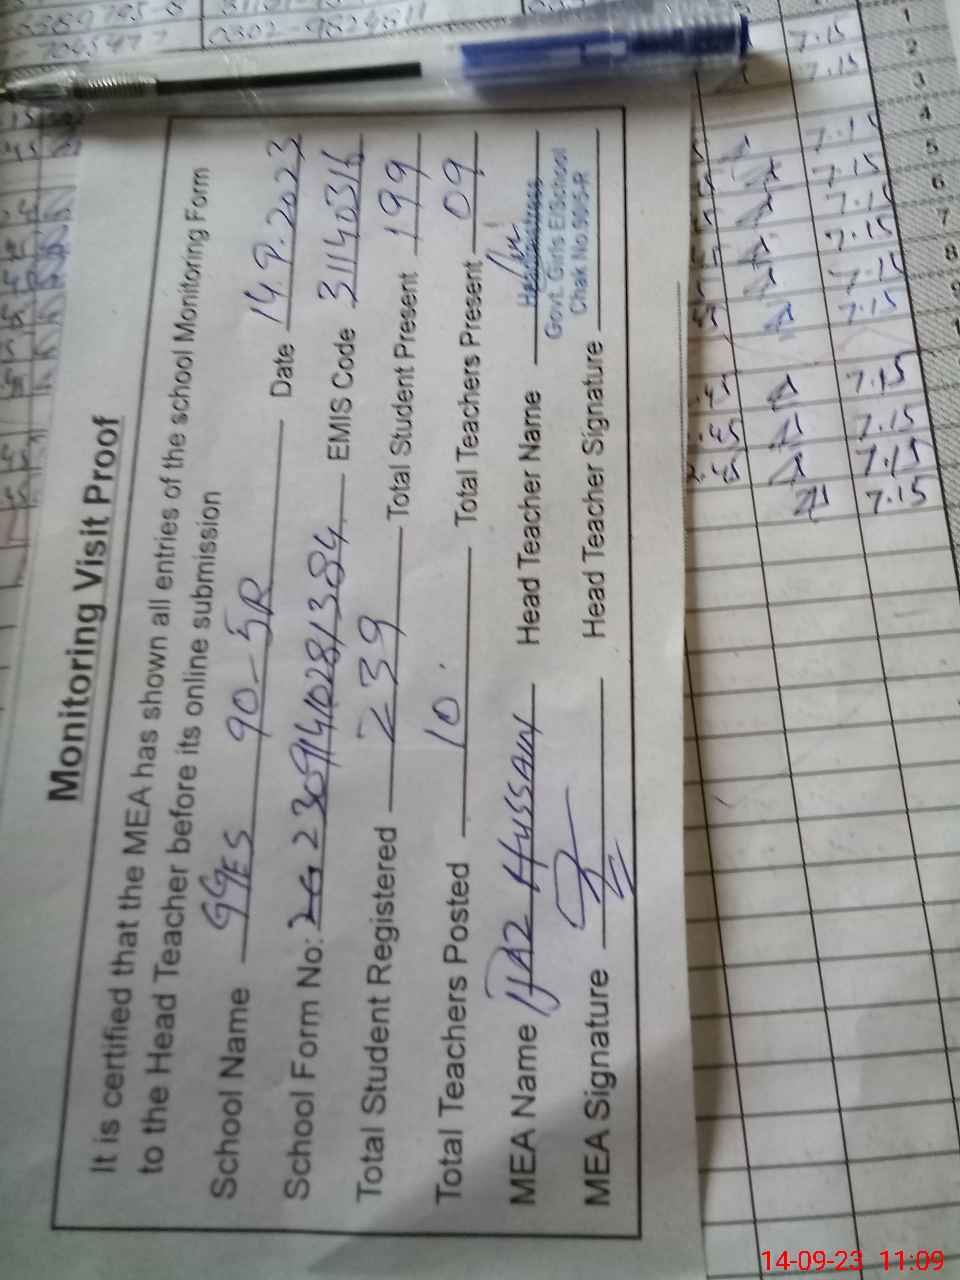 Monitoring Visit Proof
It is certified that the MEA has shown all entries of the school Monitoring Form
to the Head Teacher before its online submission
School Name GGES 90-5R Date 14.9.2023
School Form No: 23091410281384 EMIS Code 31140316
Total Student Registered 239 Total Student Present 199
Total Teachers Posted 10. Total Teachers Present 09
MEA Name IJAZ HUSSAIN Head Teacher Name
Headmistress
Govt. Girls E/School
Chak No.90/5-R
MEA Signature Head Teacher Signature
0302-9824811
1 7.15
2 7.15
3
4 7.15
5 7.15
6 7.15
7 7.15
8 7.15
7.15
.45 7.15
.45 7.15
2.45 7.15
7.15
14-09-23 11:09